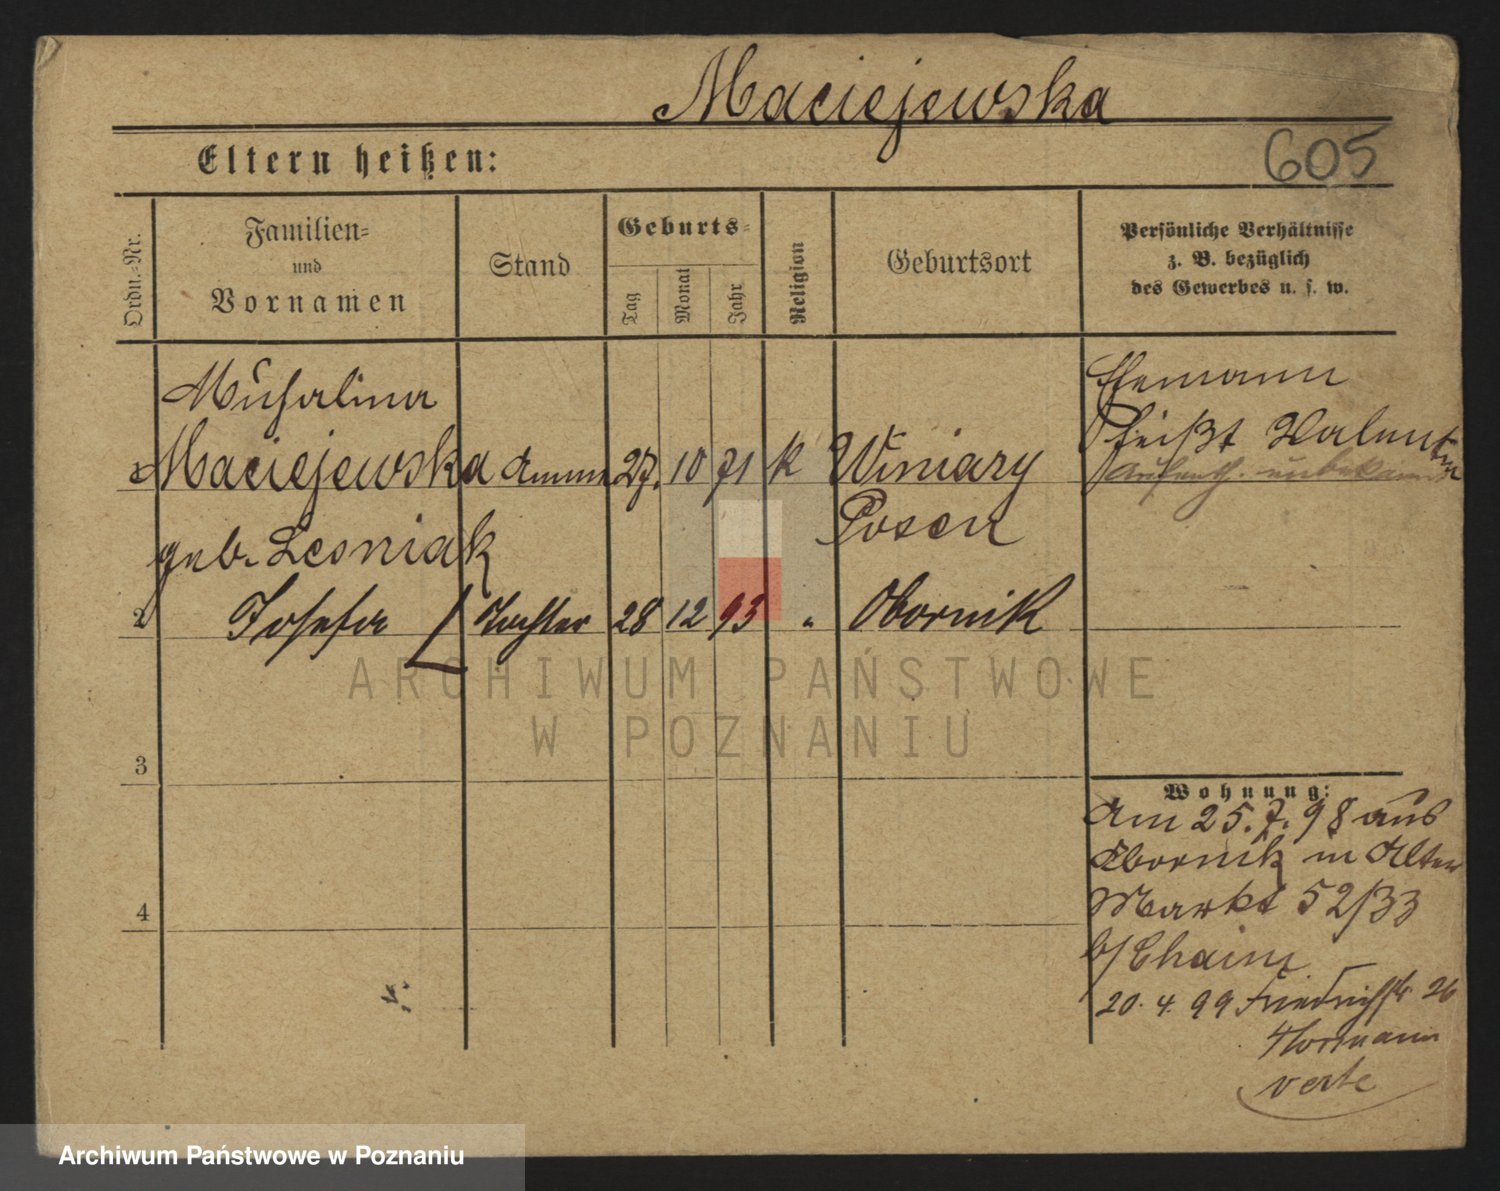 Maciejewska
Eltern heißen:
605
Ordn.=Nr.
Familien=
und
Vornamen
Stand
Geburts=
Tag
Monat
Jahr
Religion
Geburtsort
Persönliche Verhältnisse
z. B. bezüglich
des Gewerbes u. s. w.
Michalina
1 Maciejewska Amme 27. 10 71 k Winiary
geb. Lesniak Posen
Ehemann
heißt Valentin
Aufenth. unbekannt
2 Josefa Tochter 28 12 93 " Obornik
3
4
Wohnung:
Am 25. 7. 98 aus
Obornik in Alten
Markt 52/33
b/ Chaim
20. 4. 99 Friedrichstr 26
Horrmann
verte
ARCHIWUM PAŃSTWOWE
W POZNANIU
Archiwum Państwowe w Poznaniu